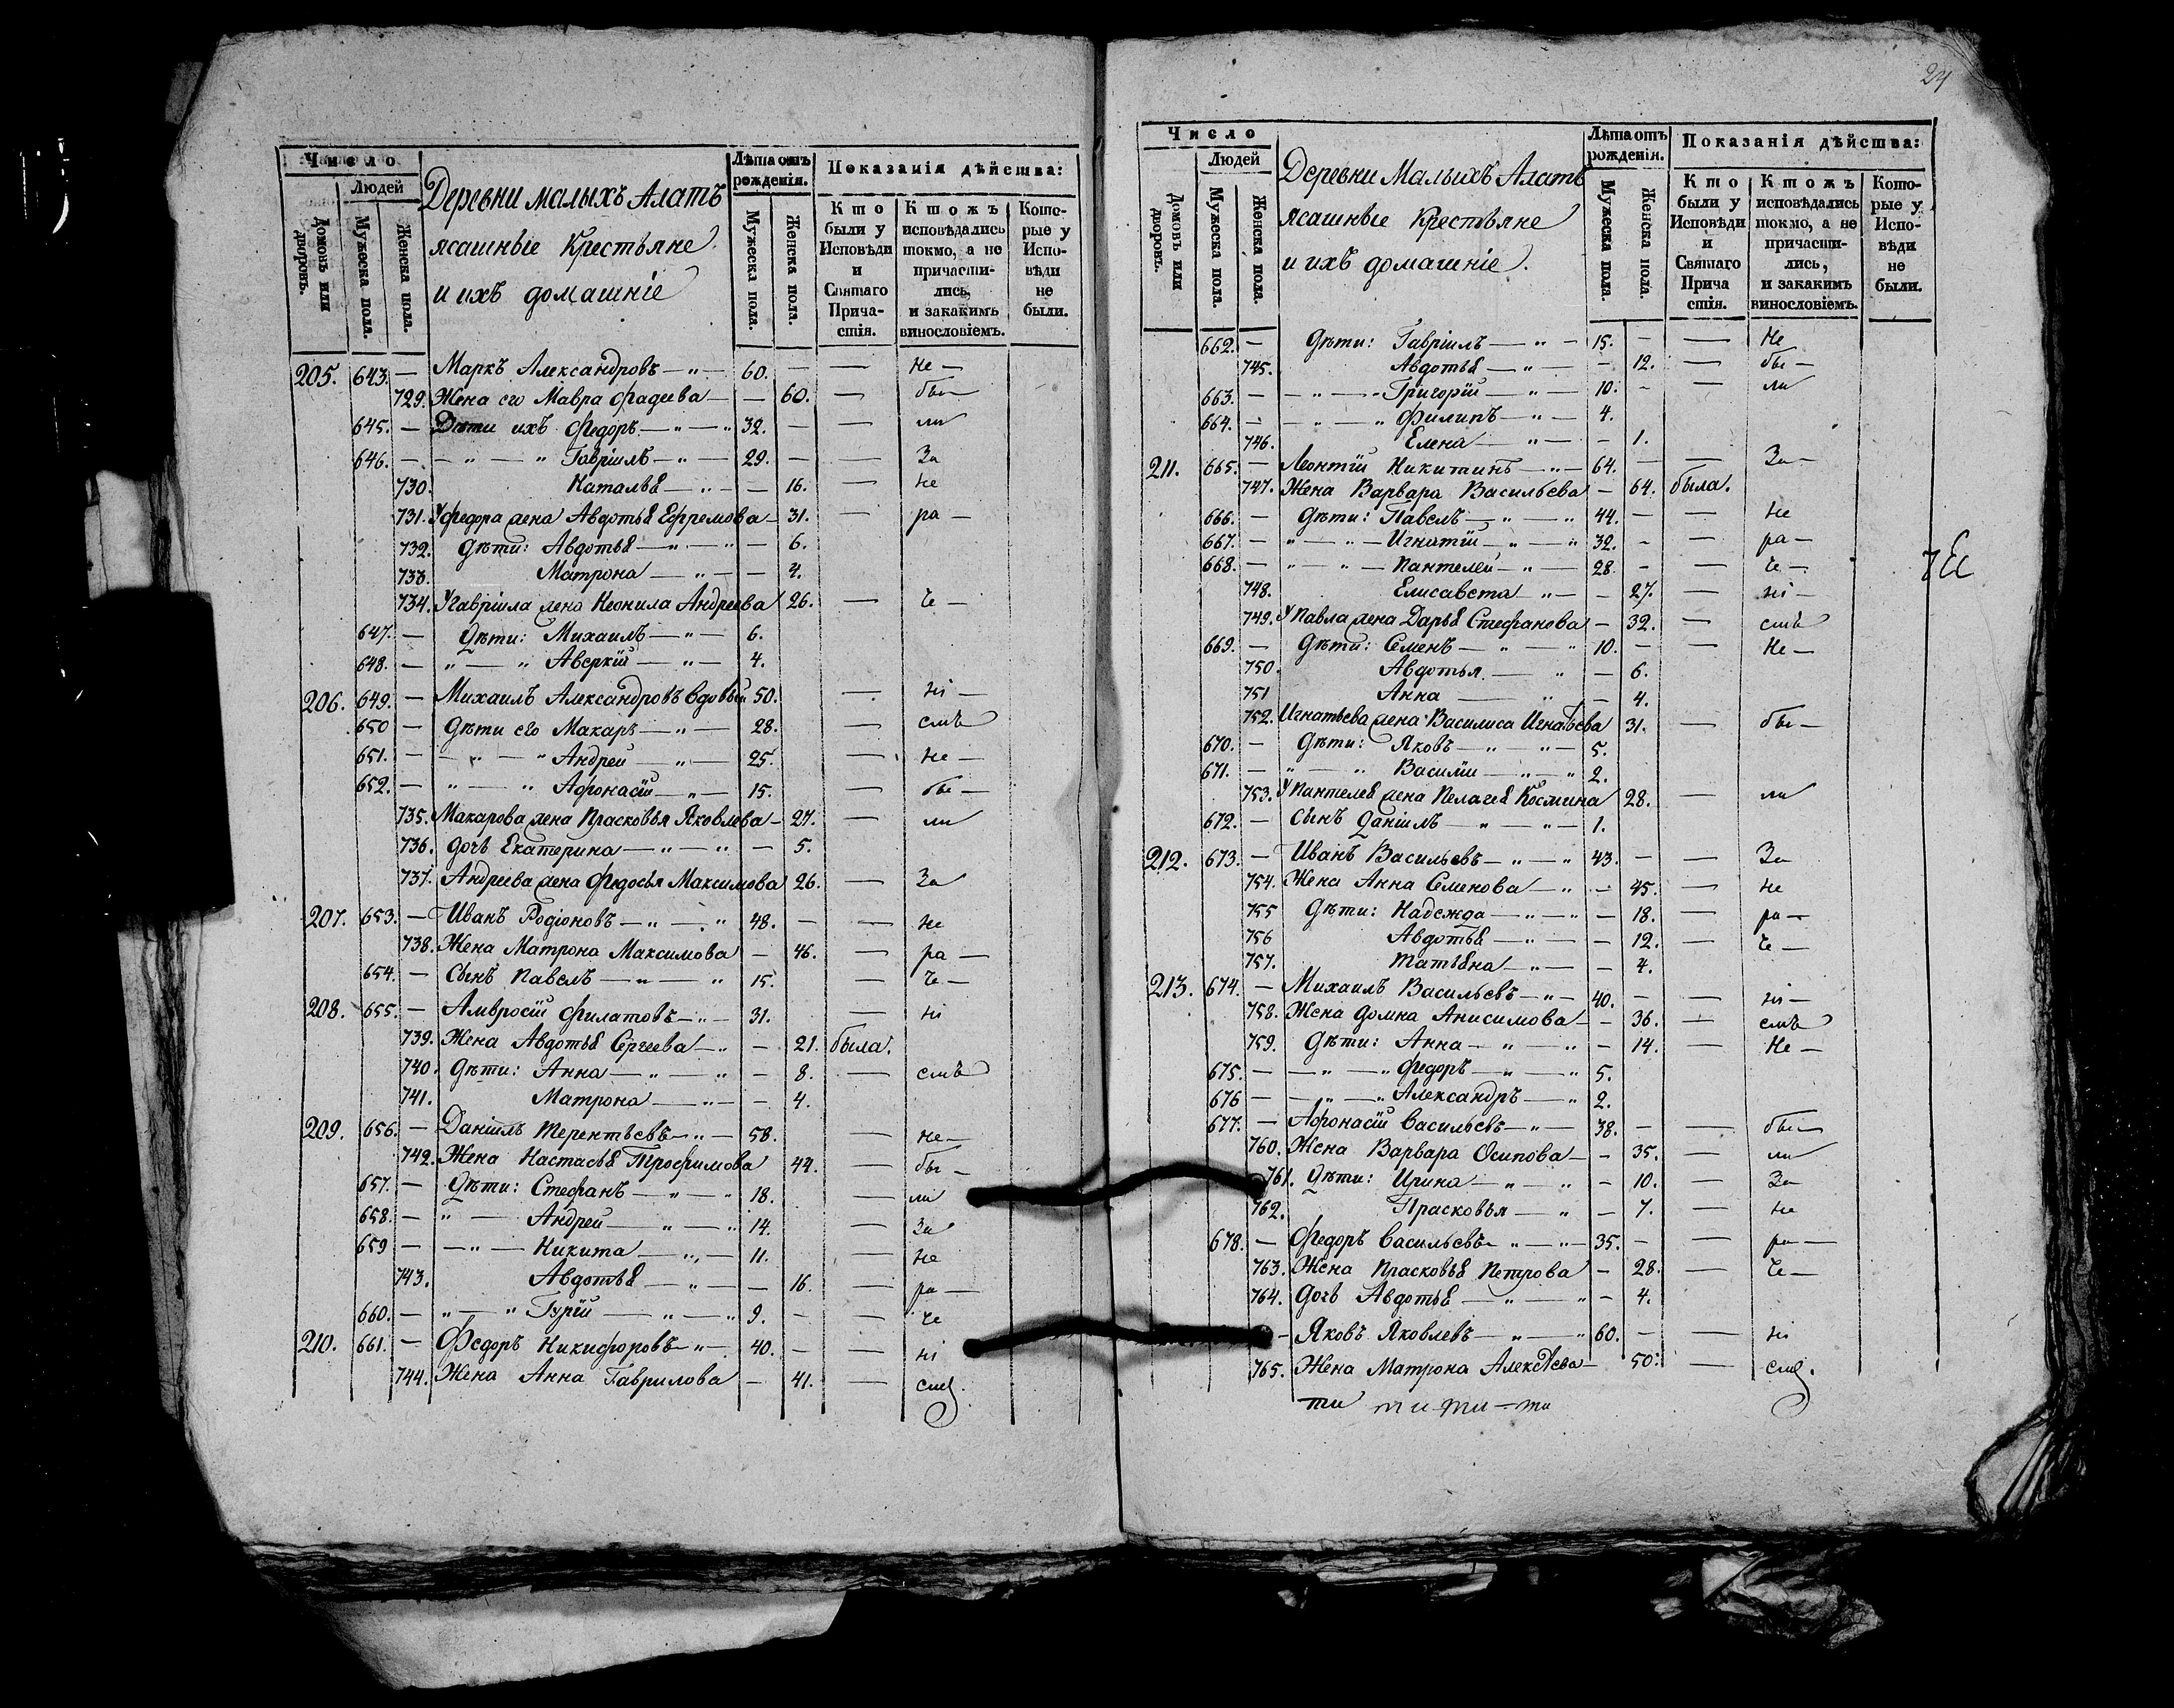 Число
Людей
Домовъ или дворовъ.
Мужеска пола.
Женска пола.
Деревни малыхъ Алатъ
ясашные Крестьяне
и ихъ домашніе
Лѣта отъ рожденія.
Мужеска пола.
Женска пола.
Показанія дѣйства:
Кто были у Исповѣди и Святаго Причастія.
Кто жъ исповѣдались токмо, а не причастились, и закакимъ винословіемъ.
Которые у Исповѣди не были.
205. 643. — Маркъ Александровъ — " — 60. — — Не —
729. Жена его Мавра Фадеева — — 60. — бы
645. — Дѣти ихъ Федоръ — " — " 32. — — ли
646. — — " — " Гавріилъ — " — 29. — — За
730. Наталья — " — — 16. — не
731. У Федора жена Авдотья Ефремова — 31. — ра —
732. Дѣти: Авдотья — " — " — 6.
733. Матрона — " — — 4.
734. У Гавріила жена Неонила Андреева 26. — че —
647. — Дѣти: Михаилъ — " — 6.
648. — " — " Аверкій — " — 4.
206. 649. — Михаилъ Александровъ вдовый 50. — ні —
650 — Дѣти его Макаръ — " — 28. — емъ
651. — — " — " Андрей — " — 25. — не —
652. — " — " Афонасій — " — 15. — бы —
735. Макарова жена Прасковья Яковлева — 27. — ли
736. Дочь Екатерина — " — " — 5.
737. Андреева жена Федосья Максимова 26. — За
207. 653. — Иванъ Родіоновъ — " — " 48. — — не
738. Жена Матрона Максимова — 46. — ра —
654. — Сынъ Павелъ — " — " 15. — че —
208. 655. — Амвросій Филатовъ — " — 31. — ні
739. Жена Авдотья Сергеева — " — 21. была.
740. Дѣти: Анна — " — " — 8. — емъ
741. Матрона — " — — 4.
209. 656. — Даніилъ Терентьевъ — " — 58. — не —
742. Жена Настасья Трофимова 44. — бы —
657. — Дѣти: Стефанъ — " — " 18. — ли
658. — " — Андрей — " — " 14. — За
659 — — " — Никита — " — 11. — не
743. Авдотья — " — — 16. — ра —
660. — " — " Гурій — " — " 9. — — че
210. 661. — Федоръ Никифоровъ — " — 40. — — ні
744. Жена Анна Гаврилова — 41. — емъ.
24
Число
Людей
Домовъ или дворовъ.
Мужеска пола.
Женска пола.
Деревни Малыхъ Алатъ
ясашные Крестьяне
и ихъ домашніе.
Лѣта отъ рожденія.
Мужеска пола.
Женска пола.
Показанія дѣйства:
Кто были у Исповѣди и Святаго Причастія.
Кто жъ исповѣдались токмо, а не причастились, и закакимъ винословіемъ.
Которые у Исповѣди не были.
662. — Дѣти: Гавріилъ — " — 15. — — Не
745. Авдотья — " — — 12. — бы —
663. — — " — Григорій — " — 10. — — ли
664. — — " — " Филипъ — " — 4.
746. Елена — " — — 1.
211. 665. — Леонтій Никитинъ — " — 64. — — За —
747. Жена Варвара Васильева — 64. была.
666. — Дѣти: Павелъ — " — " 44. — — не
667. — " — " — Игнатій — " — " 32. — — ра —
668. — " — " — Пантелей — " — 28. — — че —
748. Елисавета — " — — 27. — ні —
749. У Павла жена Дарья Стефанова — 32. — емъ
669. — Дѣти: Семенъ — " — " 10. — — Не —
750. Авдотья — " — 6.
751 Анна — " — 4.
752. Игнатьева жена Василиса Игнатьева 31. — бы —
670. — Дѣти: Яковъ — " — " — 5.
671. — " — " Василій — " — " 2.
753. У Пантелея жена Пелагея Космина 28. — ли
672. — Сынъ Даніилъ — " — " — 1.
212. 673. — Иванъ Васильевъ — " — " 43. — — За
754. Жена Анна Семенова — " — 45. — не
755 Дѣти: Надежда — " — " — 18. — ра —
756 Авдотья — " — — 12. — че —
757. Татьяна — " — — 4.
213. 674. — Михаилъ Васильевъ — " — 40. — — ні —
758. Жена Домна Анисимова — — 36. — емъ
759. Дѣти: Анна — " — " — 14. — Не —
675. — — " — " Федоръ — " — " 5.
676 — — " — " Александръ — " 2.
677. — Афонасій Васильевъ — " — 38. — — бы —
760. Жена Варвара Осипова — — 35. — ли
761. Дѣти: Ирина — " — " — 10. — За
762. Прасковья — " — 7. — не
678. — Федоръ Васильевъ — " — " 35. — — ра —
763. Жена Прасковья Петрова — 28. — че —
764. Дочь Авдотья — " — " — 4.
— Яковъ Яковлевъ — " — " 60. — — ні
765. Жена Матрона Алексѣева — 50. — емъ.
ти ти-ти-ти